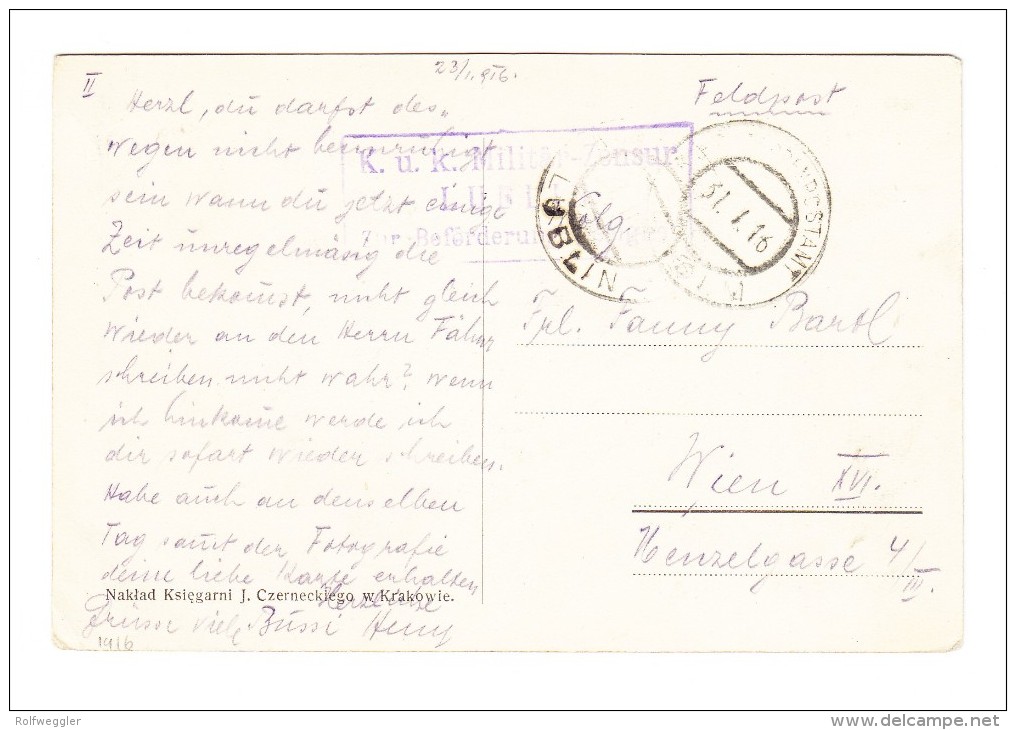 II
23/I. 916.
Feldpost
Herzl, du darfst des„
wegen nicht beunruhigt
sein wann du jetzt einige
Zeit unregelmäsig die
Post bekomst, nicht gleich
wieder an den Herrn Fähnr
schreiben nicht wahr? wenn
ich hinkome werde ich
dir sofort wieder schreiben.
Habe auch an denselben
Tag samt der Fotografie
deine liebe Karte erhalten
Herzliche
Grüsse viele Bussi
1916
K. u. k. Militär-Zensur
Zur Beförderung
LUBLIN
31. I. 16
Frl. Fanny Bartl
Wien XVI.
Menzelgasse 4/III.
Nakład Księgarni J. Czerneckiego w Krakowie.
Rolfweggler
delcampe.net